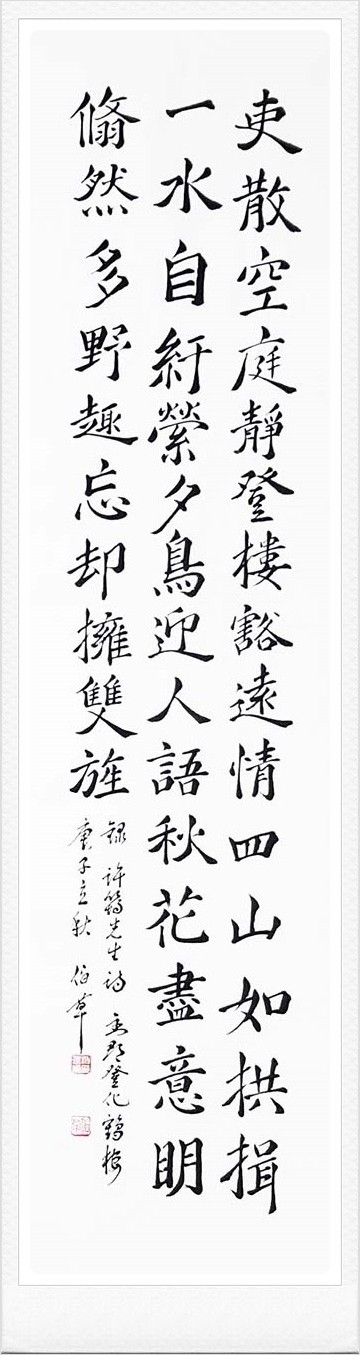 吏散空庭靜登樓豁遠情四山如拱揖
一水自紆縈夕鳥迎人語秋花盡意明
翛然多野趣忘却擁雙旌
錄許籌先生詩 至郡登化鶴樓
庚子立秋 伯草